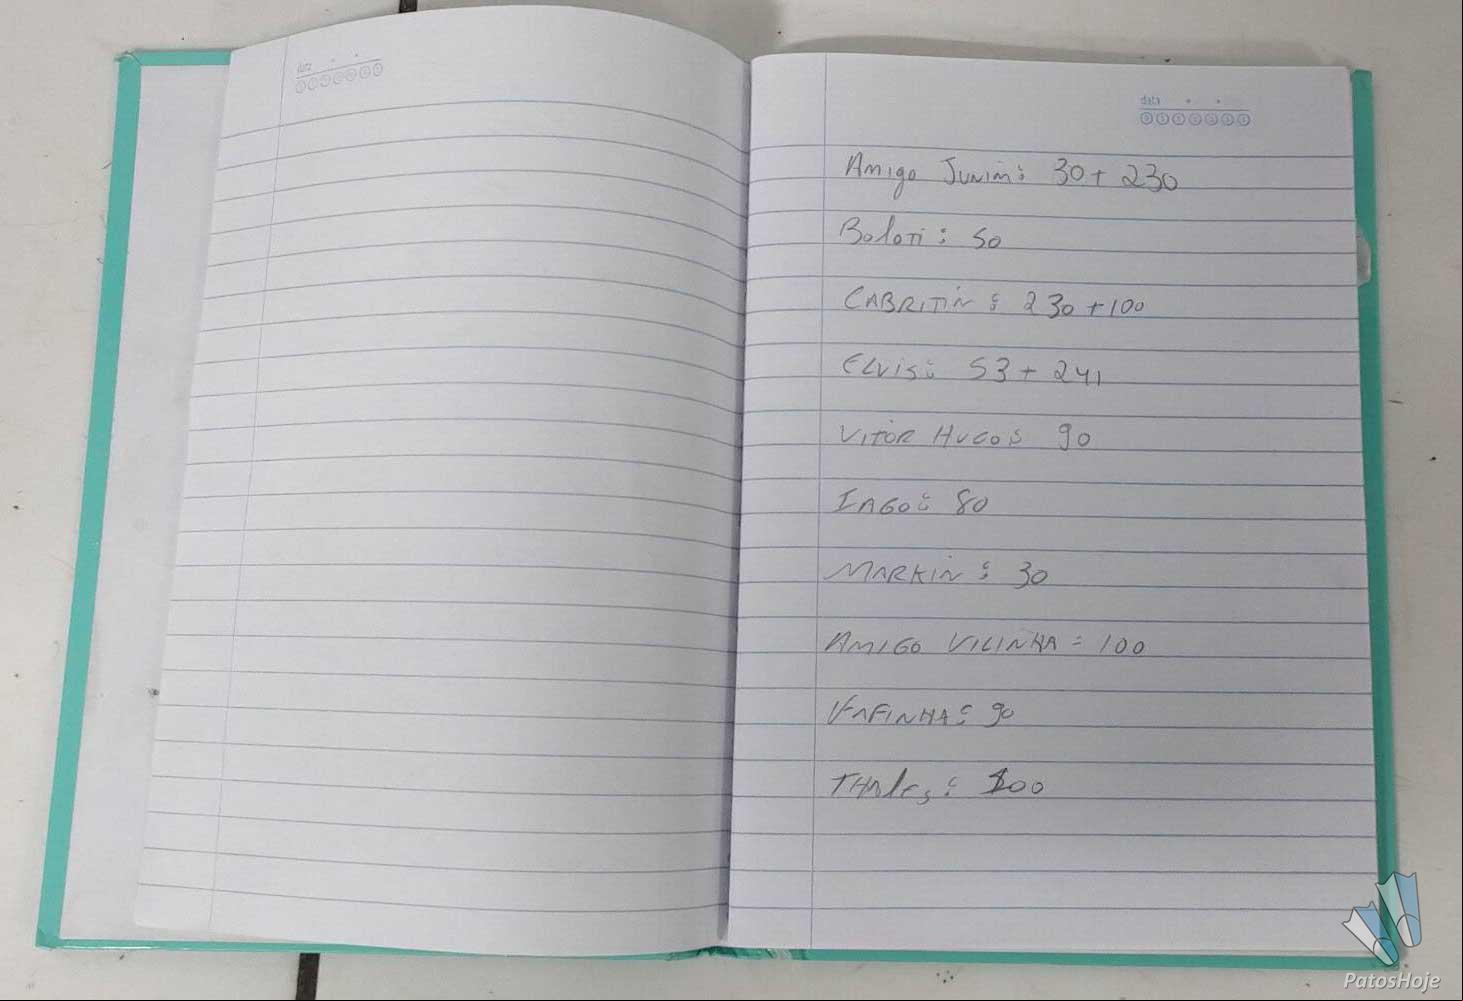 data
data
Amigo Junin: 30 + 230
Boloti: 50
CABRITIN: 230 + 100
ELVIS: 53 + 241
VITOR HUGO: 90
IAGO: 80
MARKIN: 30
AMIGO VILINHA = 100
VAFINHA: 90
THALES: 100
PatosHoje